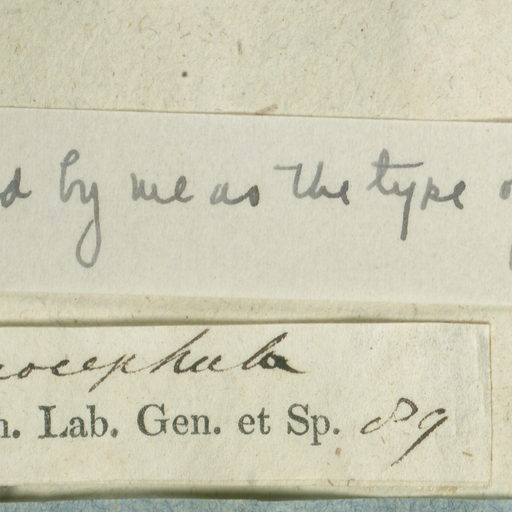 d by me as the type o
ocephala
n. Lab. Gen. et Sp. 89